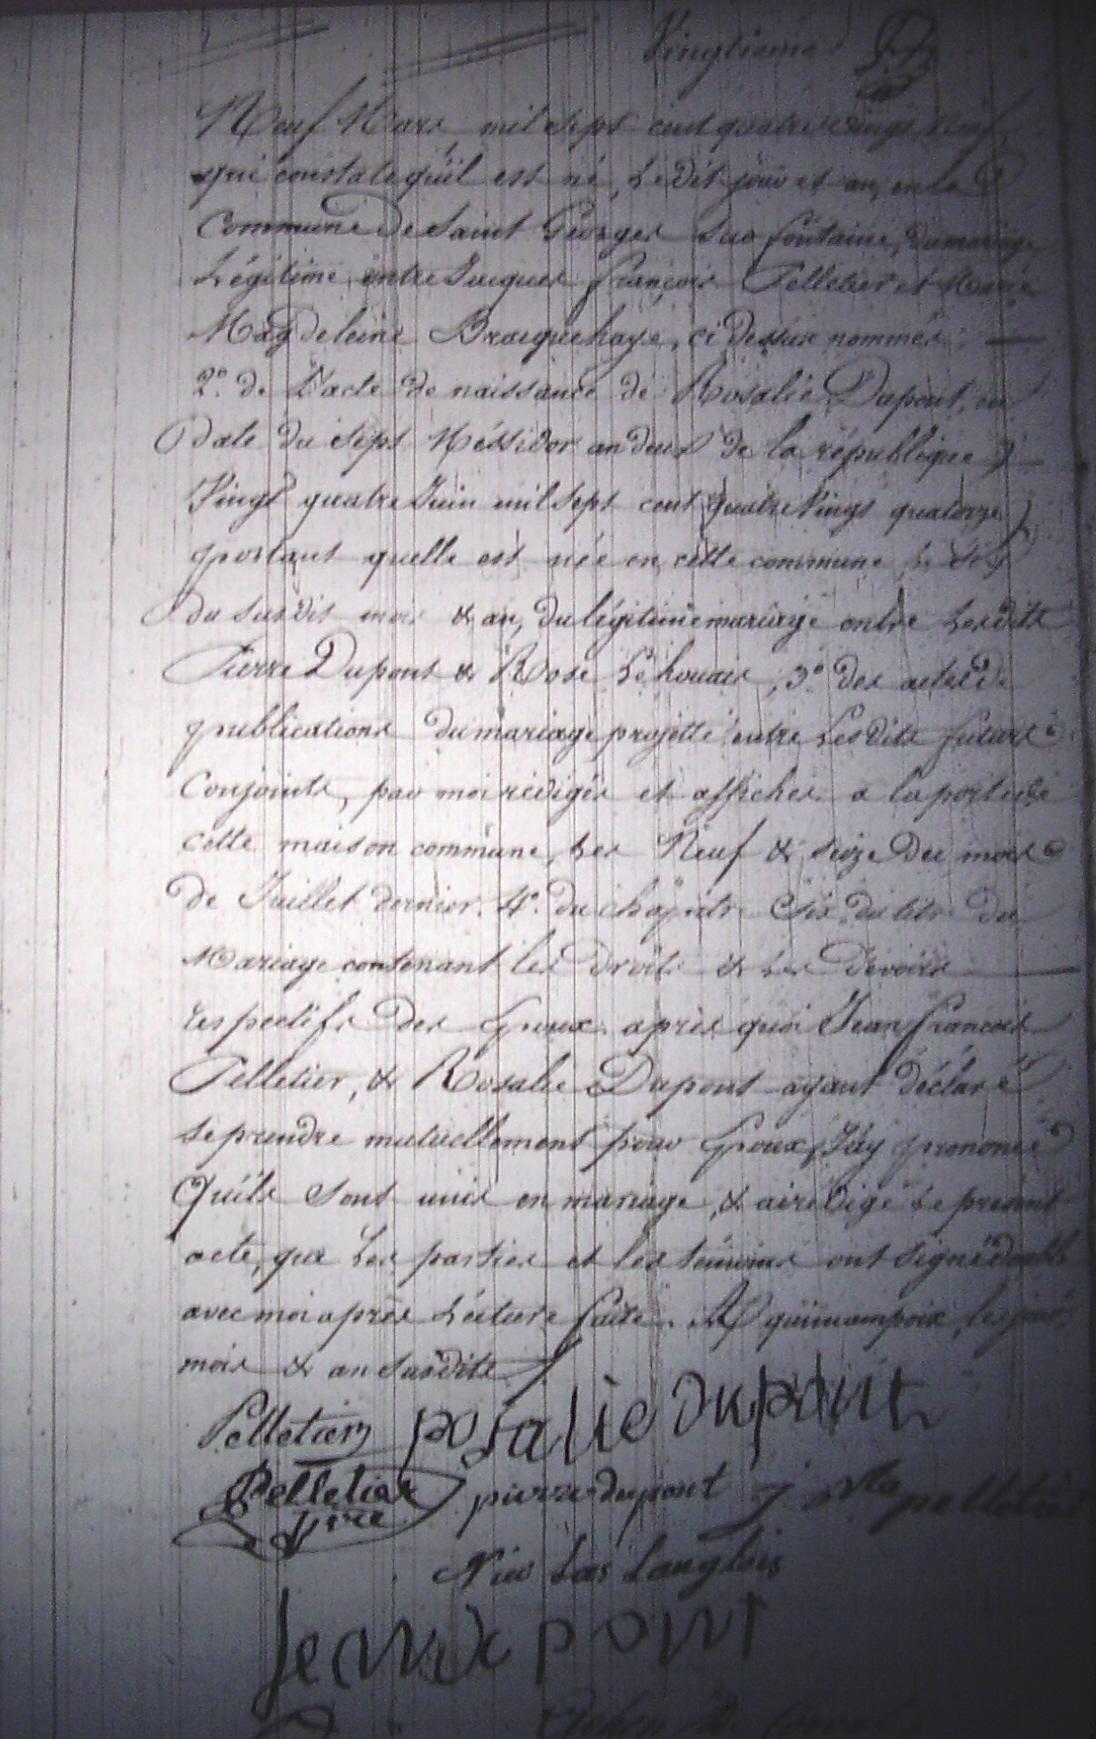 Vingtieme
Neuf Mars mil sept cent quatre vingt Neuf
qui constate qu'il est né, Ledit jour et an, en la
Commune de Saint Georges sur fontaine, du mariage
Légitime entre Jacques françois Pelletier et Marie
Magdeleine Bracquehaye, ci dessus nommés. —
2°. de L'acte de naissance de Rosalie Dupont, en
date du sept Messidor an deux de la république
Vingt quatre Juin mil sept cent quatre Vingt quatorze
portant quelle est née en cette commune, le
du susdit mois & an, du légitime mariage entre Lesdits
Pierre Dupont & Rose Lehouais, 3° des actes de
publications du mariage projetté entre Lesdits futurs
Conjoints, par moi rédigés et affichés a la porte de
cette maison commune, Les Neuf & Seize du mois
de Juillet dernier. 4°. du chapitre Six du titre du
Mariage contenant les droits & Les Devoirs —
respectifs des Epoux. après quoi Jean françois
Pelletier, & Rosalie Dupont ayant déclaré
se prendre mutuellement pour Epoux, J'ay prononcé
Qu'ils sont unis en mariage, & ai rédigé Le présent
acte, que Les parties et les témoins ont signé double
avec moi après Lecture faite. A quincampoix, les jour
mois & an susdits
Pelletier rosalie dupont
Pelletier pierre dupont pelletier
Nico Las Langlois
Jean du pont